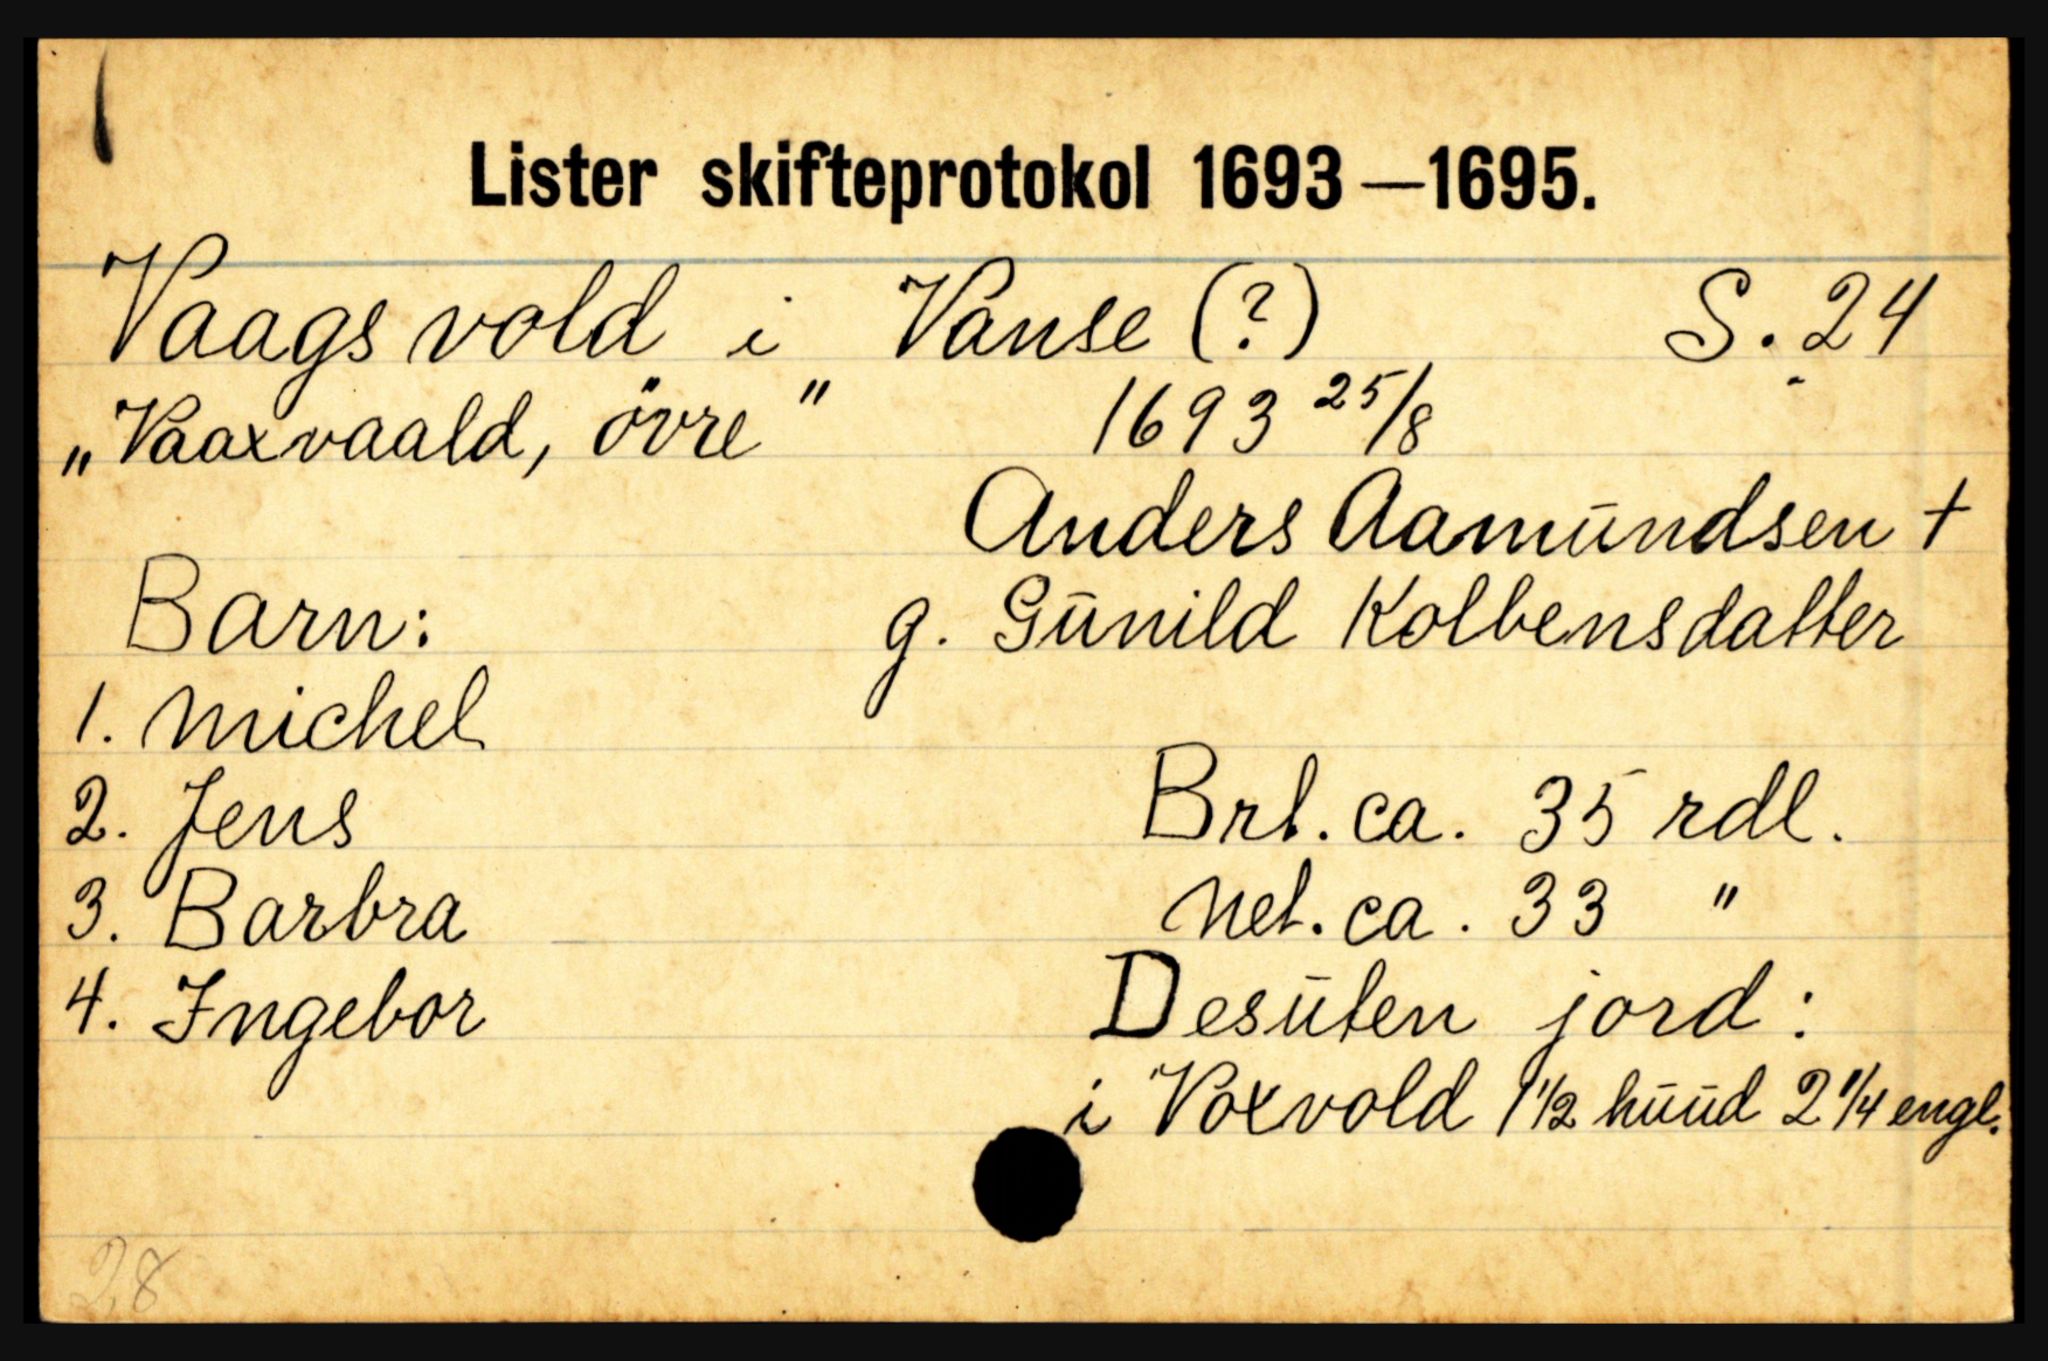 Lister skifteprotokol 1693—1695.
Vaagsvold i Vanse (?) S. 24
„Vaaxvaald, övre" 1693 25/8
Anders Aamundsen +
Barn: g. Gunild Kolbensdatter
1. Michel
2. Jens Brt. ca. 35 rdl.
3. Barbra Net. ca. 33 "
4. Ingebor Desuten jord:
i Voxvold 1 1/2 huud 2 1/4 engl.
28